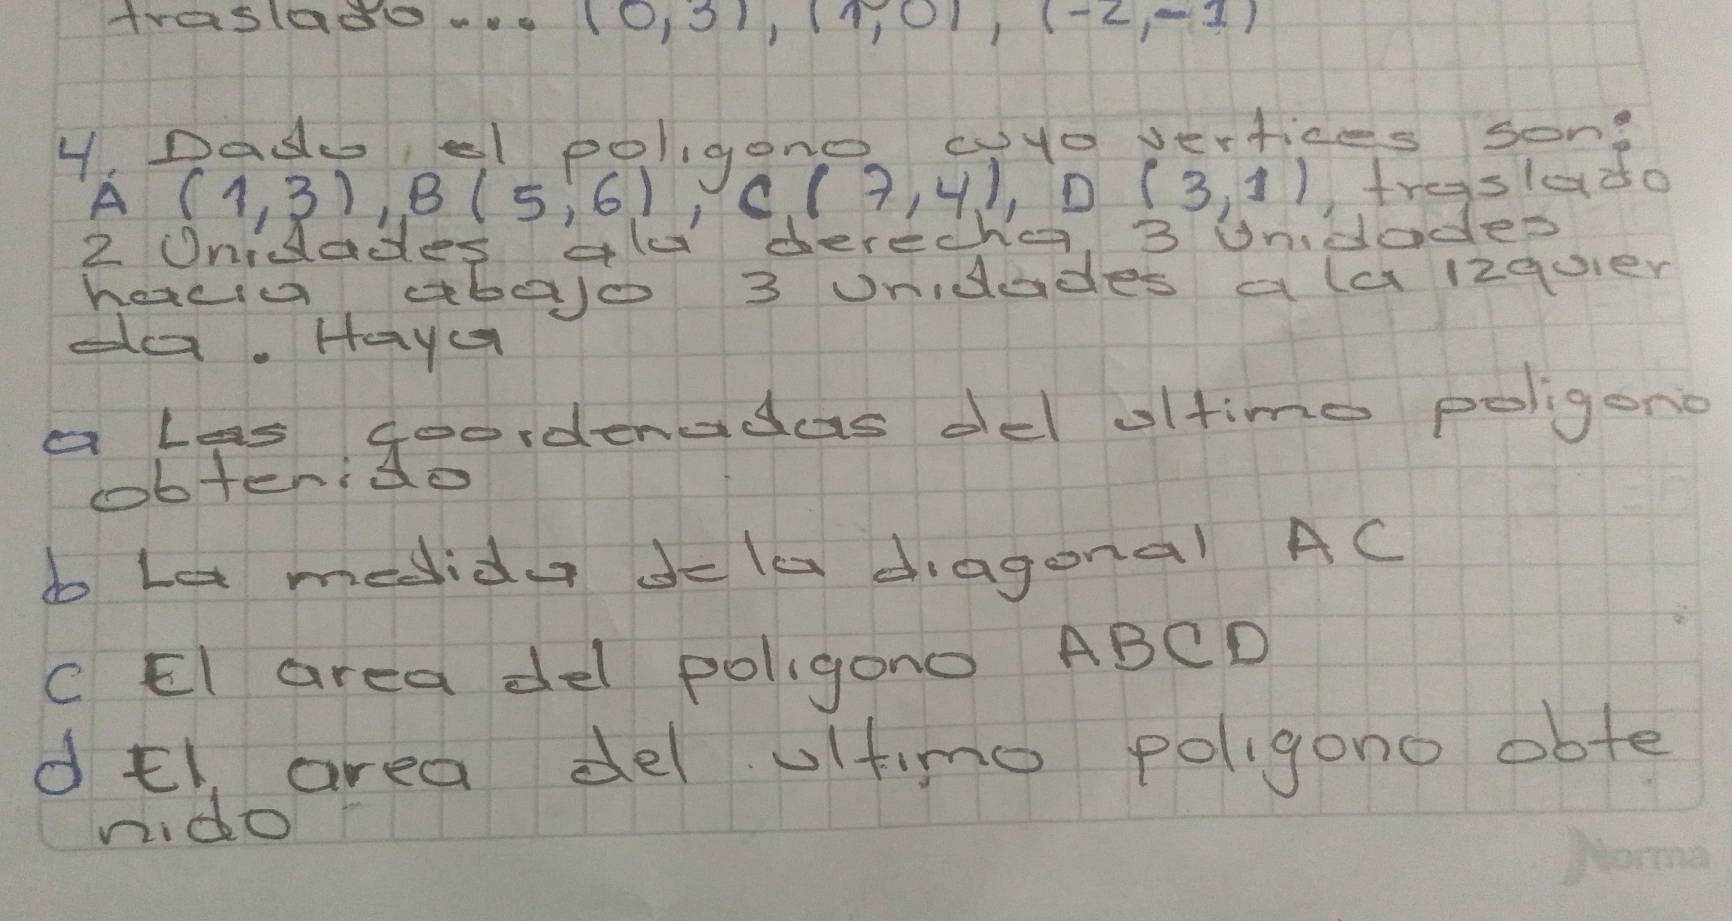 traslado... (0,3), (1,0), (-2,-1)
4. Dado el poligono cuyo vertices son:
A (1,3), B(5,6), C(7,4), D (3,1), traslado
2 Unidades ala derecha 3 Unidades
hacia abajo 3 Unidades a la izquier
da. Haya
a Las coordenadas del ultimo poligono
obtenido
b La medida dela diagonal AC
c El area del poligono ABCD
d El area del ultimo poligono obte
nido
Norma